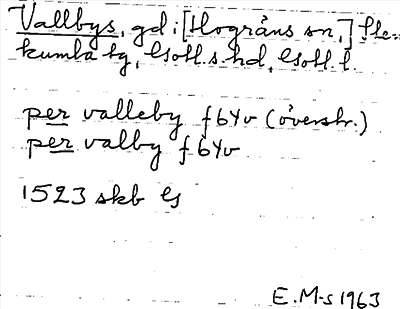 Vallbys, gd i [Hogräns sn,] Ste=
kumla tg, Gotl. s. hd, Gotl. l.
per valleby f 64v (överstr.)
per valby f 64v
1523 skb G
E.M-s 1963